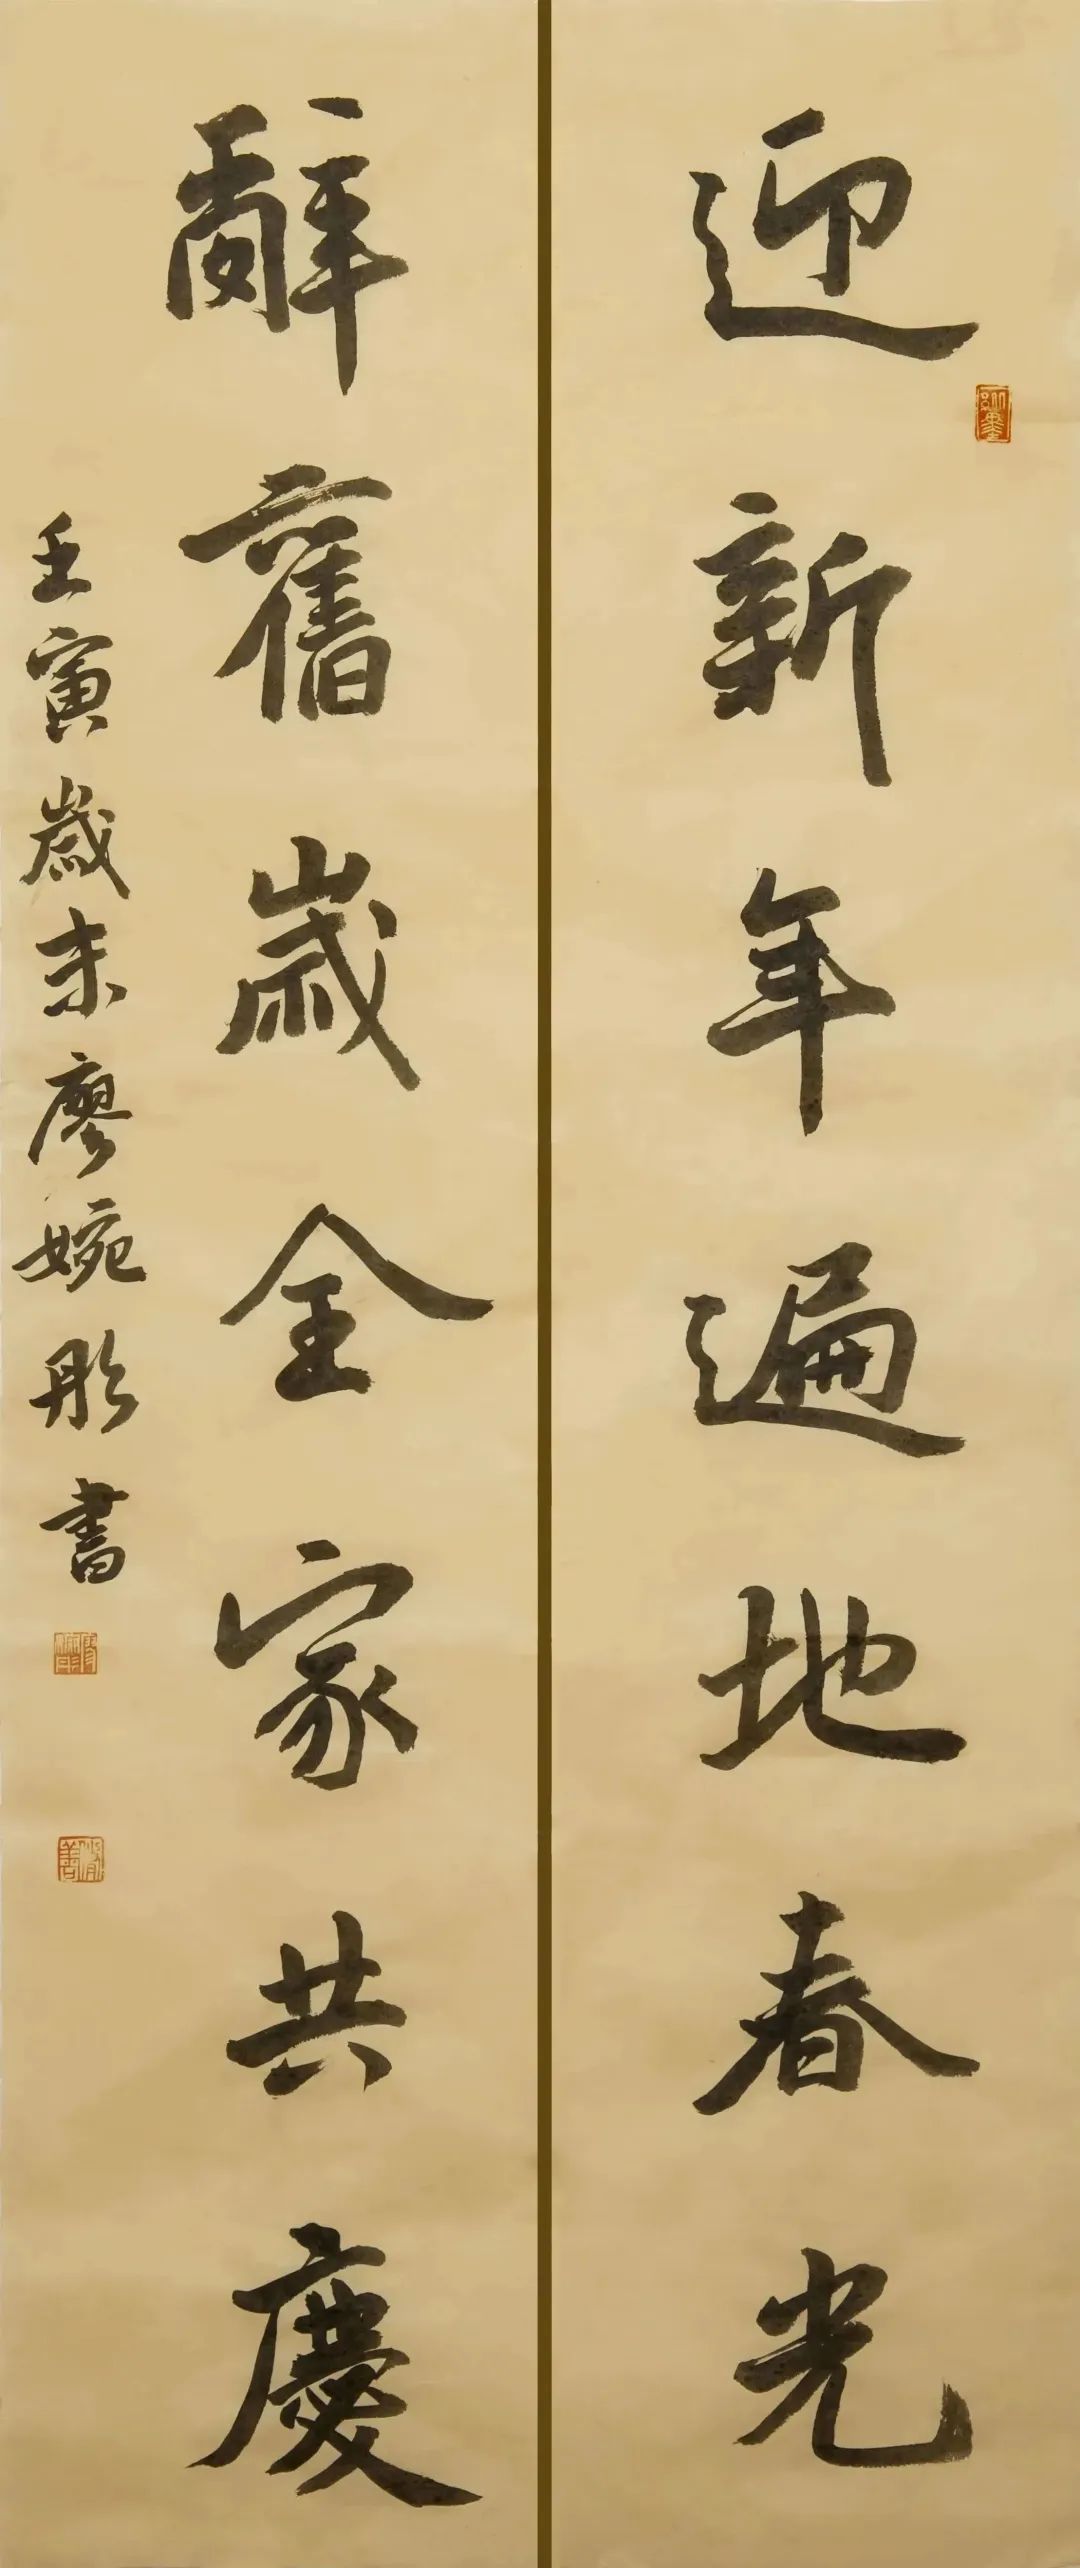 迎新年遍地春光
辭舊歲全家共慶
壬寅歲末廖婉彤書